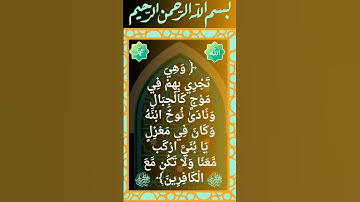 بسم الله الرحمن الرحيم
الله
محمد
﴿ وَهِيَ
تَجْرِي بِهِمْ فِي
مَوْجٍ كَالْجِبَالِ
وَنَادَىٰ نُوحٌ ابْنَهُ
وَكَانَ فِي مَعْزِلٍ
يَا بُنَيَّ ارْكَب
مَّعَنَا وَلَا تَكُن مَّعَ
الْكَافِرِينَ﴾